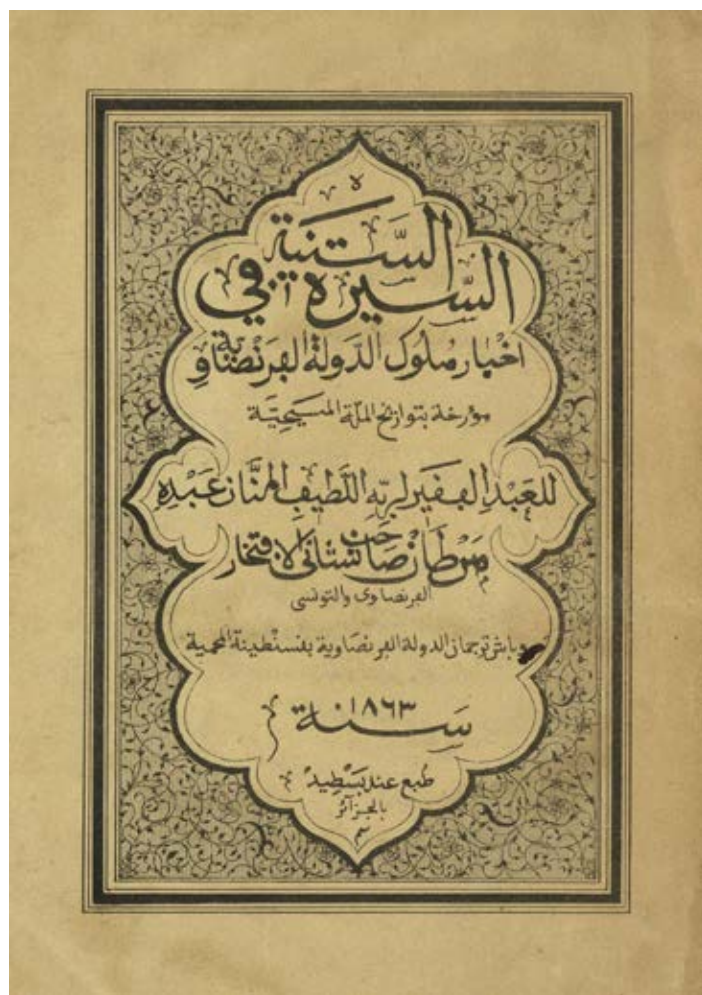 السيرة السَّنية في
اخبار ملوك الدولة الڢرنصَاوية
مؤرخة بتواريخ الملة المسيحيّة
للعبدِ الڢفير لربّه اللّطيفِ المنَّان عَبْدِه
مرطان صاحب نشاني الاڢتخار
الڢرنصاوى والتونسى
باش ترجمان الدولة الڢرنصاوية بڧسنطينة المحمية
سنة ١٨٦٣
طبع عند بَسْطِيد
بالجزآئر